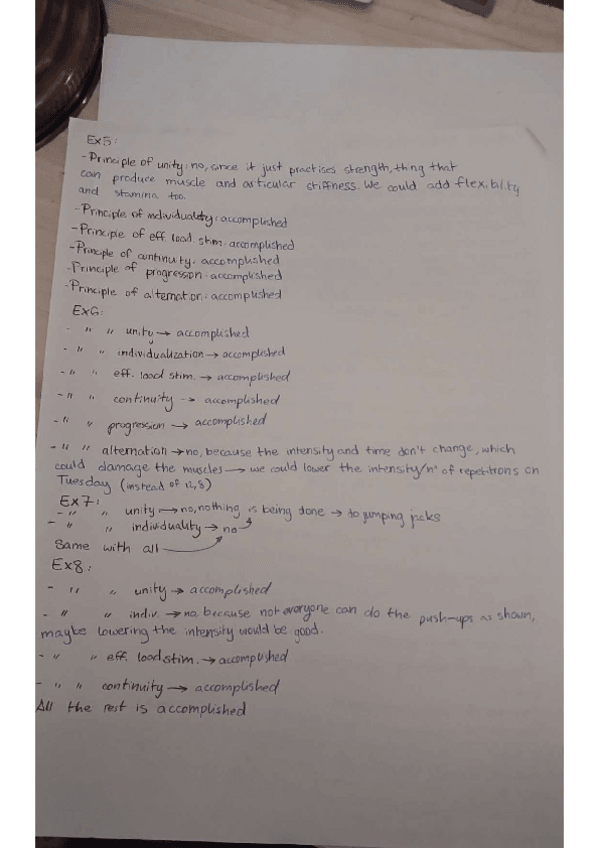 Ex5:
-Principle of unity: no, since it just practises strength, thing that
can produce muscle and articular stiffness. We could add flexibility
and stamina too.
-Principle of individuality: accomplished
-Principle of eff. load stim: accomplished
-Principle of continuity: accomplished
-Principle of progression: accomplished
-Principle of alternation: accomplished
Ex6:
- " " unity → accomplished
- " " individualization → accomplished
- " " eff. load stim. → accomplished
- " " continuity → accomplished
- " " progression → accomplished
- " " alternation → no, because the intensity and time don't change, which
could damage the muscles → we could lower the intensity/nº of repetitions on
Tuesday (instead of 12, 8)
Ex7:
- " " unity → no, nothing is being done → do jumping jacks
- " " individuality → no
Same with all
Ex8:
- " " unity → accomplished
- " " indiv. → no, because not everyone can do the push-ups as shown,
maybe lowering the intensity would be good.
- " " eff. load stim. → accomplished
- " " continuity → accomplished
All the rest is accomplished